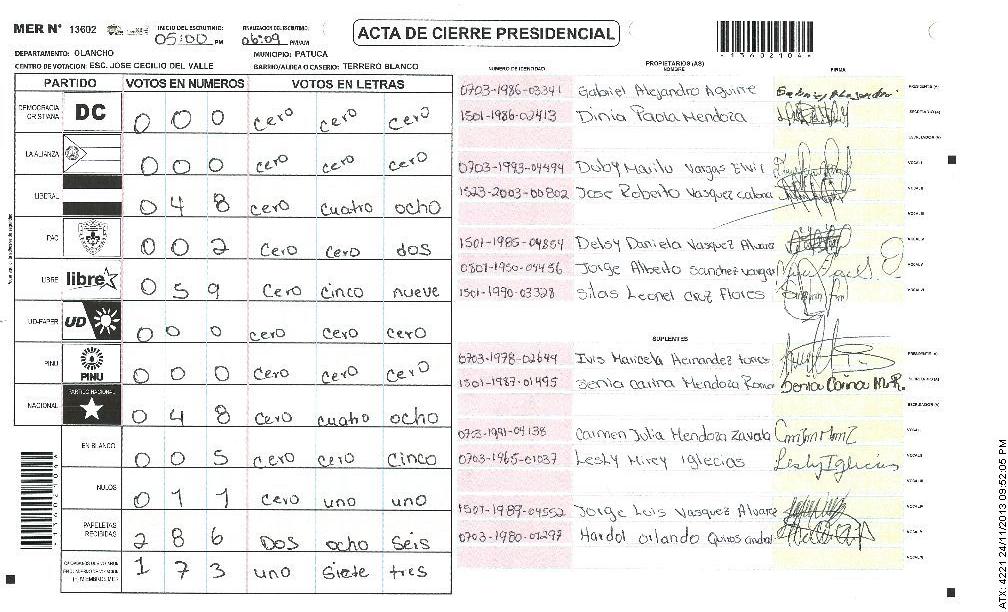 MER N° 13602
INICIO DEL ESCRUTINIO: 05:00 PM
FINALIZACION DEL ESCRUTINIO: 06:09 PM/AM
ACTA DE CIERRE PRESIDENCIAL
- 1 3 6 0 2 1 0 4 -
DEPARTAMENTO: OLANCHO
MUNICIPIO: PATUCA
CENTRO DE VOTACION: ESC. JOSE CECILIO DEL VALLE
BARRIO/ALDEA O CASERIO: TERRERO BLANCO
PARTIDO VOTOS EN NUMEROS VOTOS EN LETRAS
DEMOCRACIA CRISTIANA DC 0 0 0 cero cero cero
LA ALIANZA 0 0 0 cero cero cero
LIBERAL 0 4 8 cero cuatro ocho
PAC 0 0 2 cero cero dos
LIBRE libre 0 5 9 cero cinco nueve
UD-FAPER UD 0 0 0 cero cero cero
PINU PINU 0 0 0 cero cero cero
NACIONAL PARTIDO NACIONAL 0 4 8 cero cuatro ocho
EN BLANCO 0 0 5 cero cero cinco
NULOS 0 1 1 cero uno uno
PAPELETAS RECIBIDAS 2 8 6 Dos ocho seis
1 7 3 uno siete tres
NUMERO DE IDENTIDAD PROPIETARIOS (AS) NOMBRE FIRMA
0703-1986-03341 Gabriel Alejandro Aguirre PRESIDENTE (A)
1501-1986-02413 Dinia Paola Mendoza SECRETARIO (A)
ESCRUTADOR (A)
0703-1993-04494 Duby Marilu Vargas VOCAL I
1523-2003-00802 Jose Roberto Vasquez VOCAL II
VOCAL III
1501-1985-04864 Delsy Daniela Vasquez Alvare VOCAL IV
0801-1950-04456 Jorge Alberto Sanchez vargas VOCAL V
1501-1990-03328 Silas Leonel Cruz Flores VOCAL VI
SUPLENTES
0703-1978-02644 Hernandez PRESIDENTE (A)
1501-1987-01495 Senia Carina Mendoza Senia Carina M.R. SECRETARIO (A)
ESCRUTADOR (A)
0703-1991-04138 Carmen Julia Mendoza Zavala VOCAL I
0703-1965-01037 Lesly Mirey Iglecias Lesly Iglecias VOCAL II
VOCAL III
1501-1989-04552 Jorge Luis Vasquez Alvare
0703-1980-01297 Hardol orlando
ATX: 4221 24/11/2013 09:52:05 PM